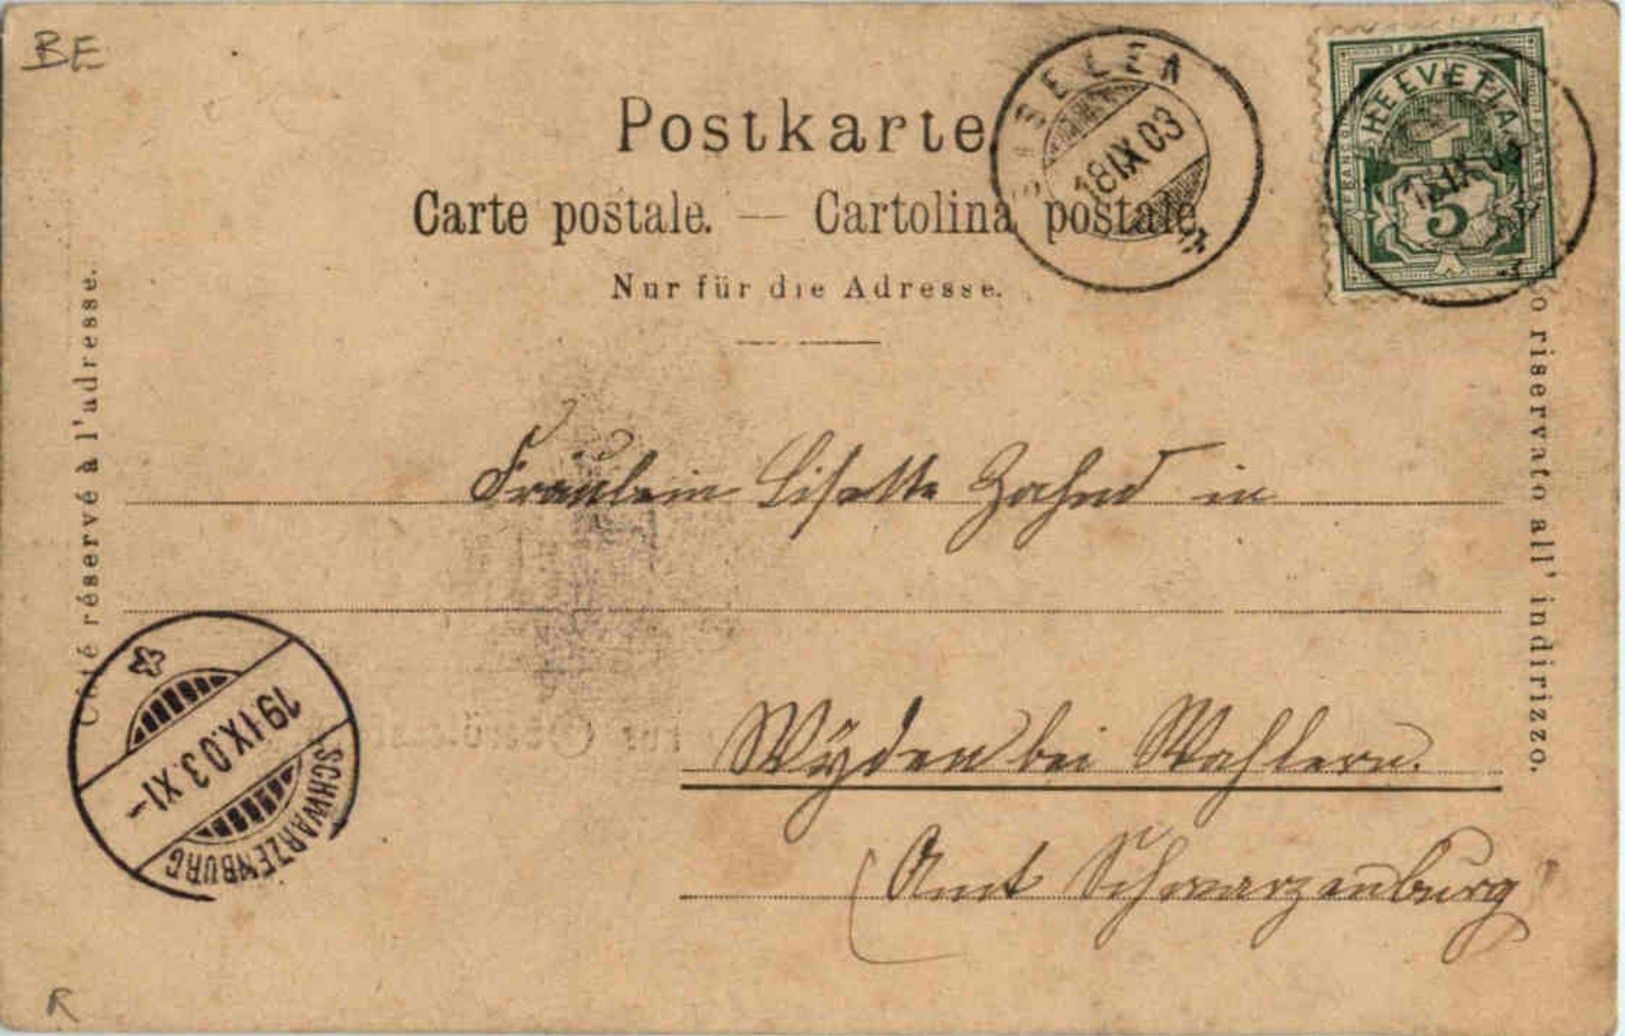 BE
Postkarte
Carte postale. — Cartolina postale.
Nur für die Adresse.
18 IX 03
HELVETIA
5
Côté réservé à l'adresse.
riservato all' indirizzo.
Fräulein Lisette Zahnd in
Wyden bei Wahlern.
(Amt Schwarzenburg)
19.IX.03.XI-
SCHWARZENBURG